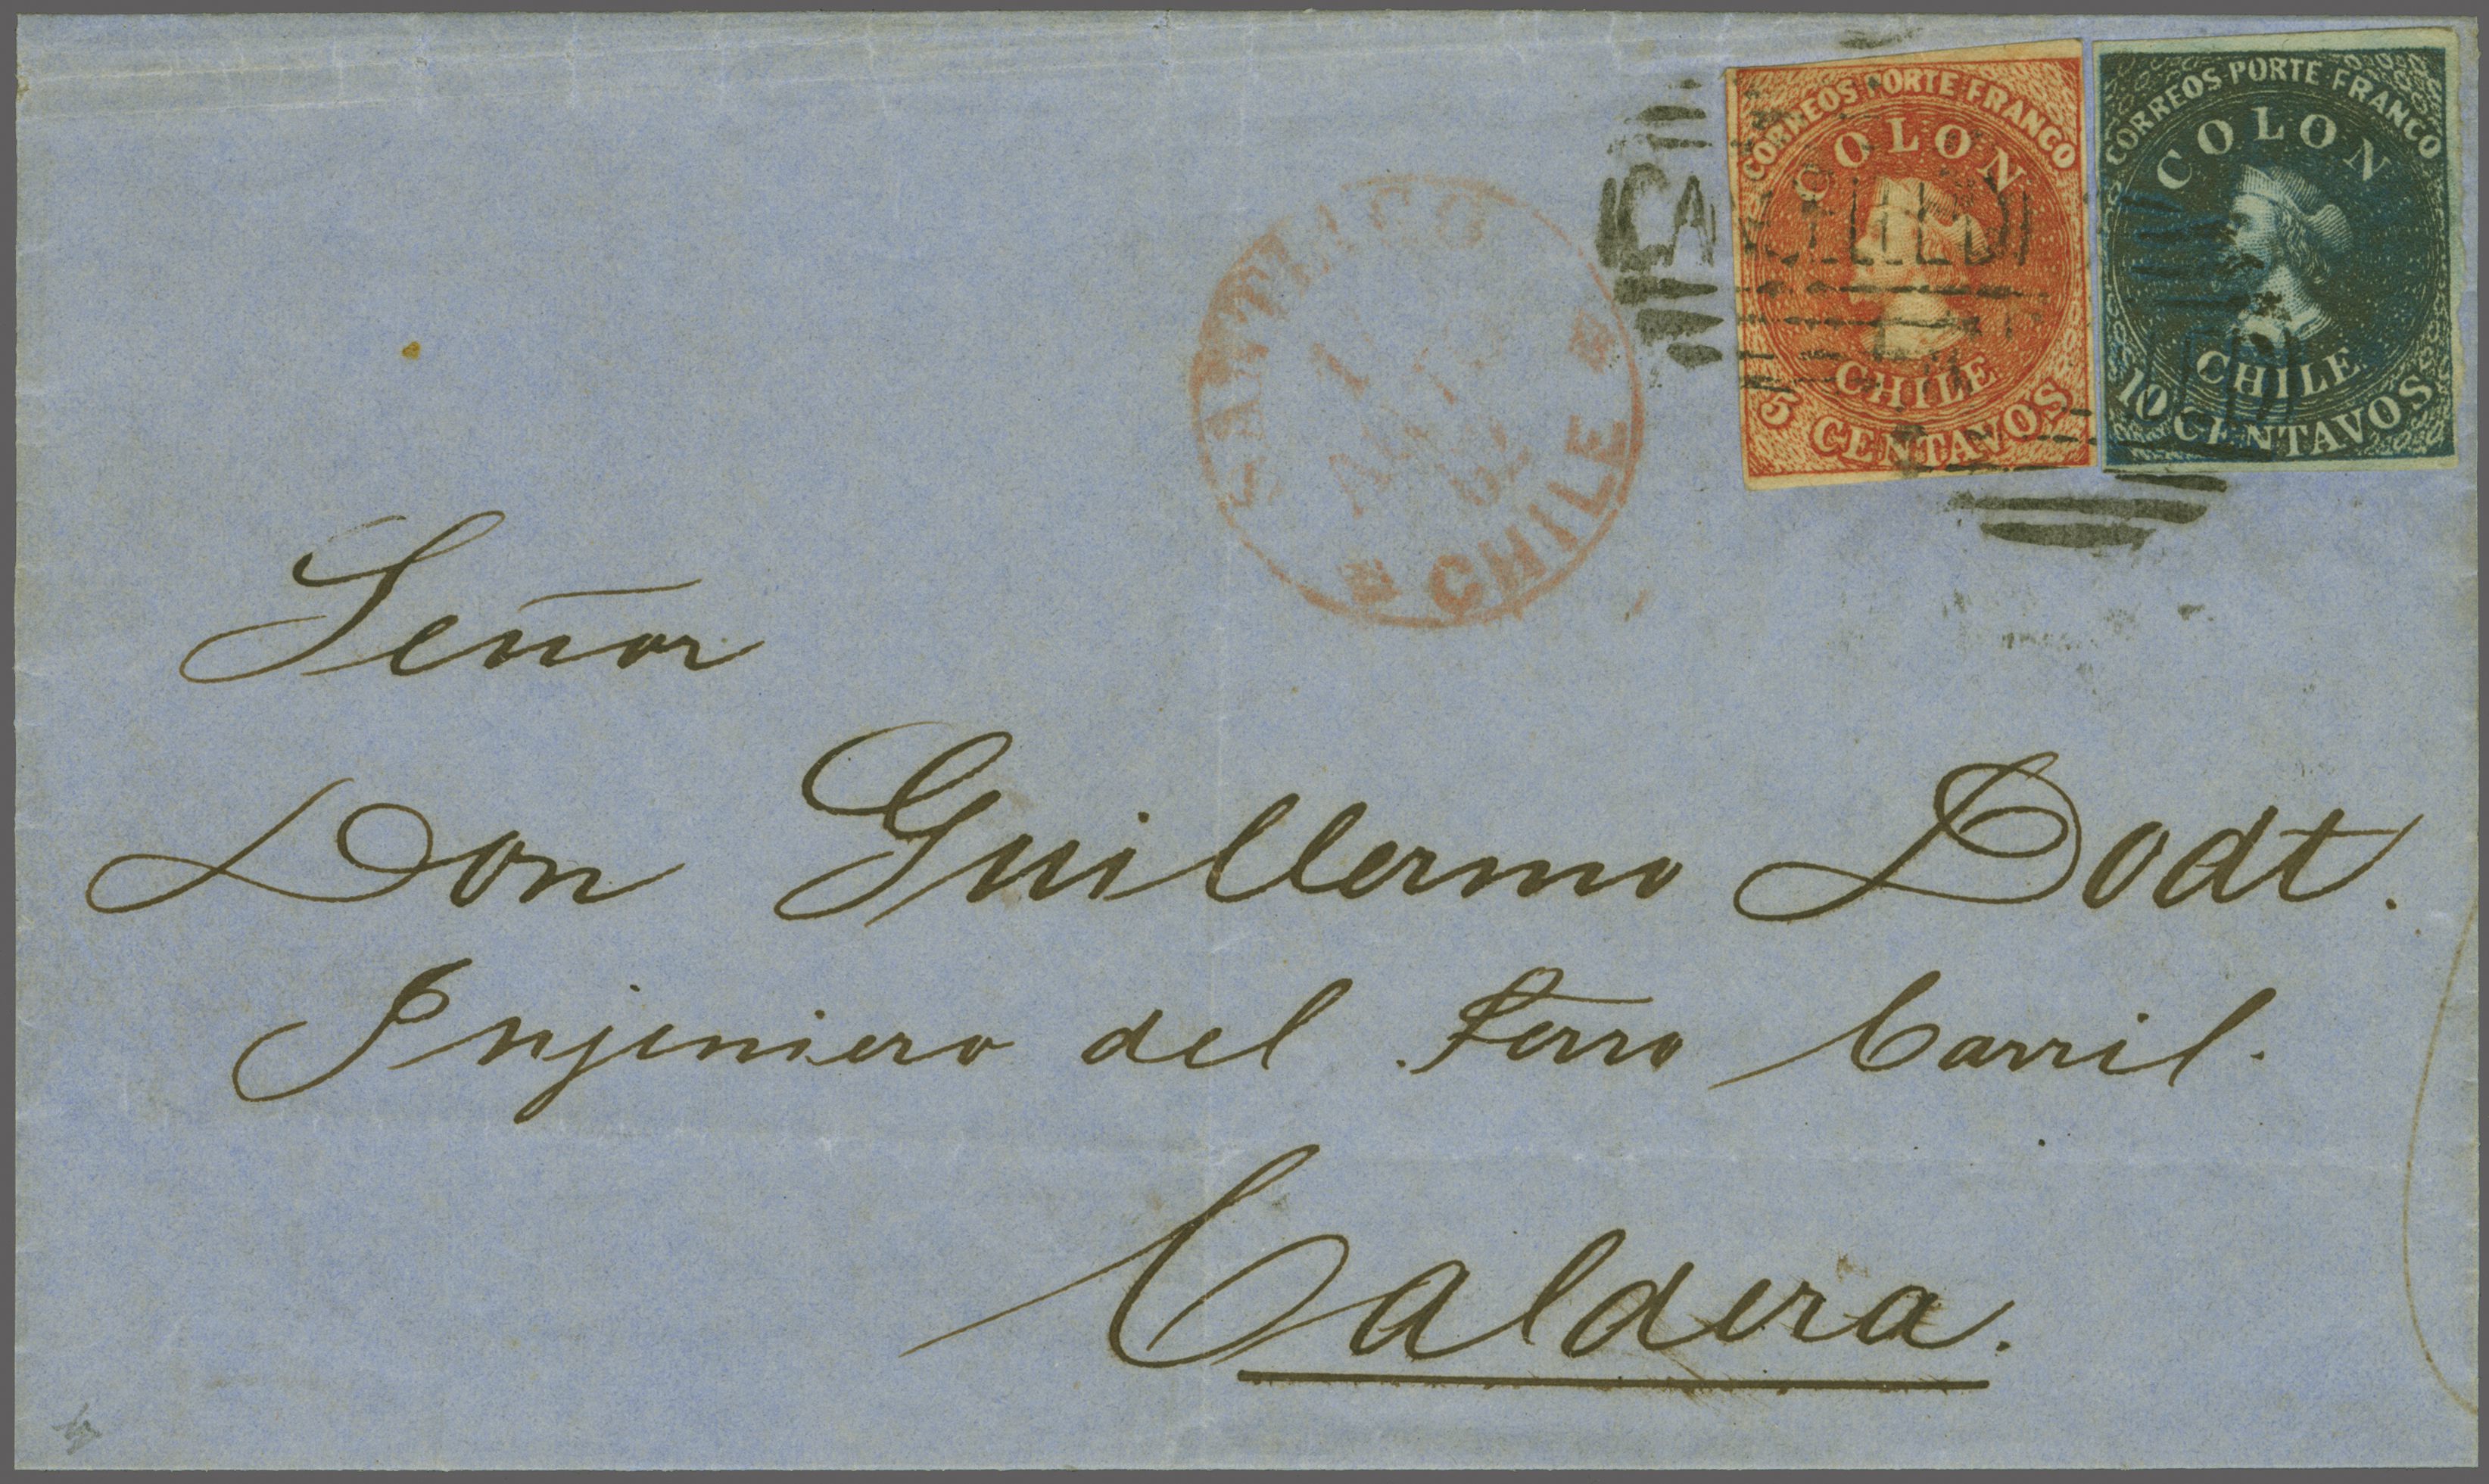 CORREOS PORTE FRANCO
COLON
CHILE
5 CENTAVOS
CORREOS PORTE FRANCO
COLON
CHILE
10 CENTAVOS
SANTIAGO
1
62
CHILE
Señor
Don Guillermo Dodt.
Injeniero del Ferro Carril.
Caldera.